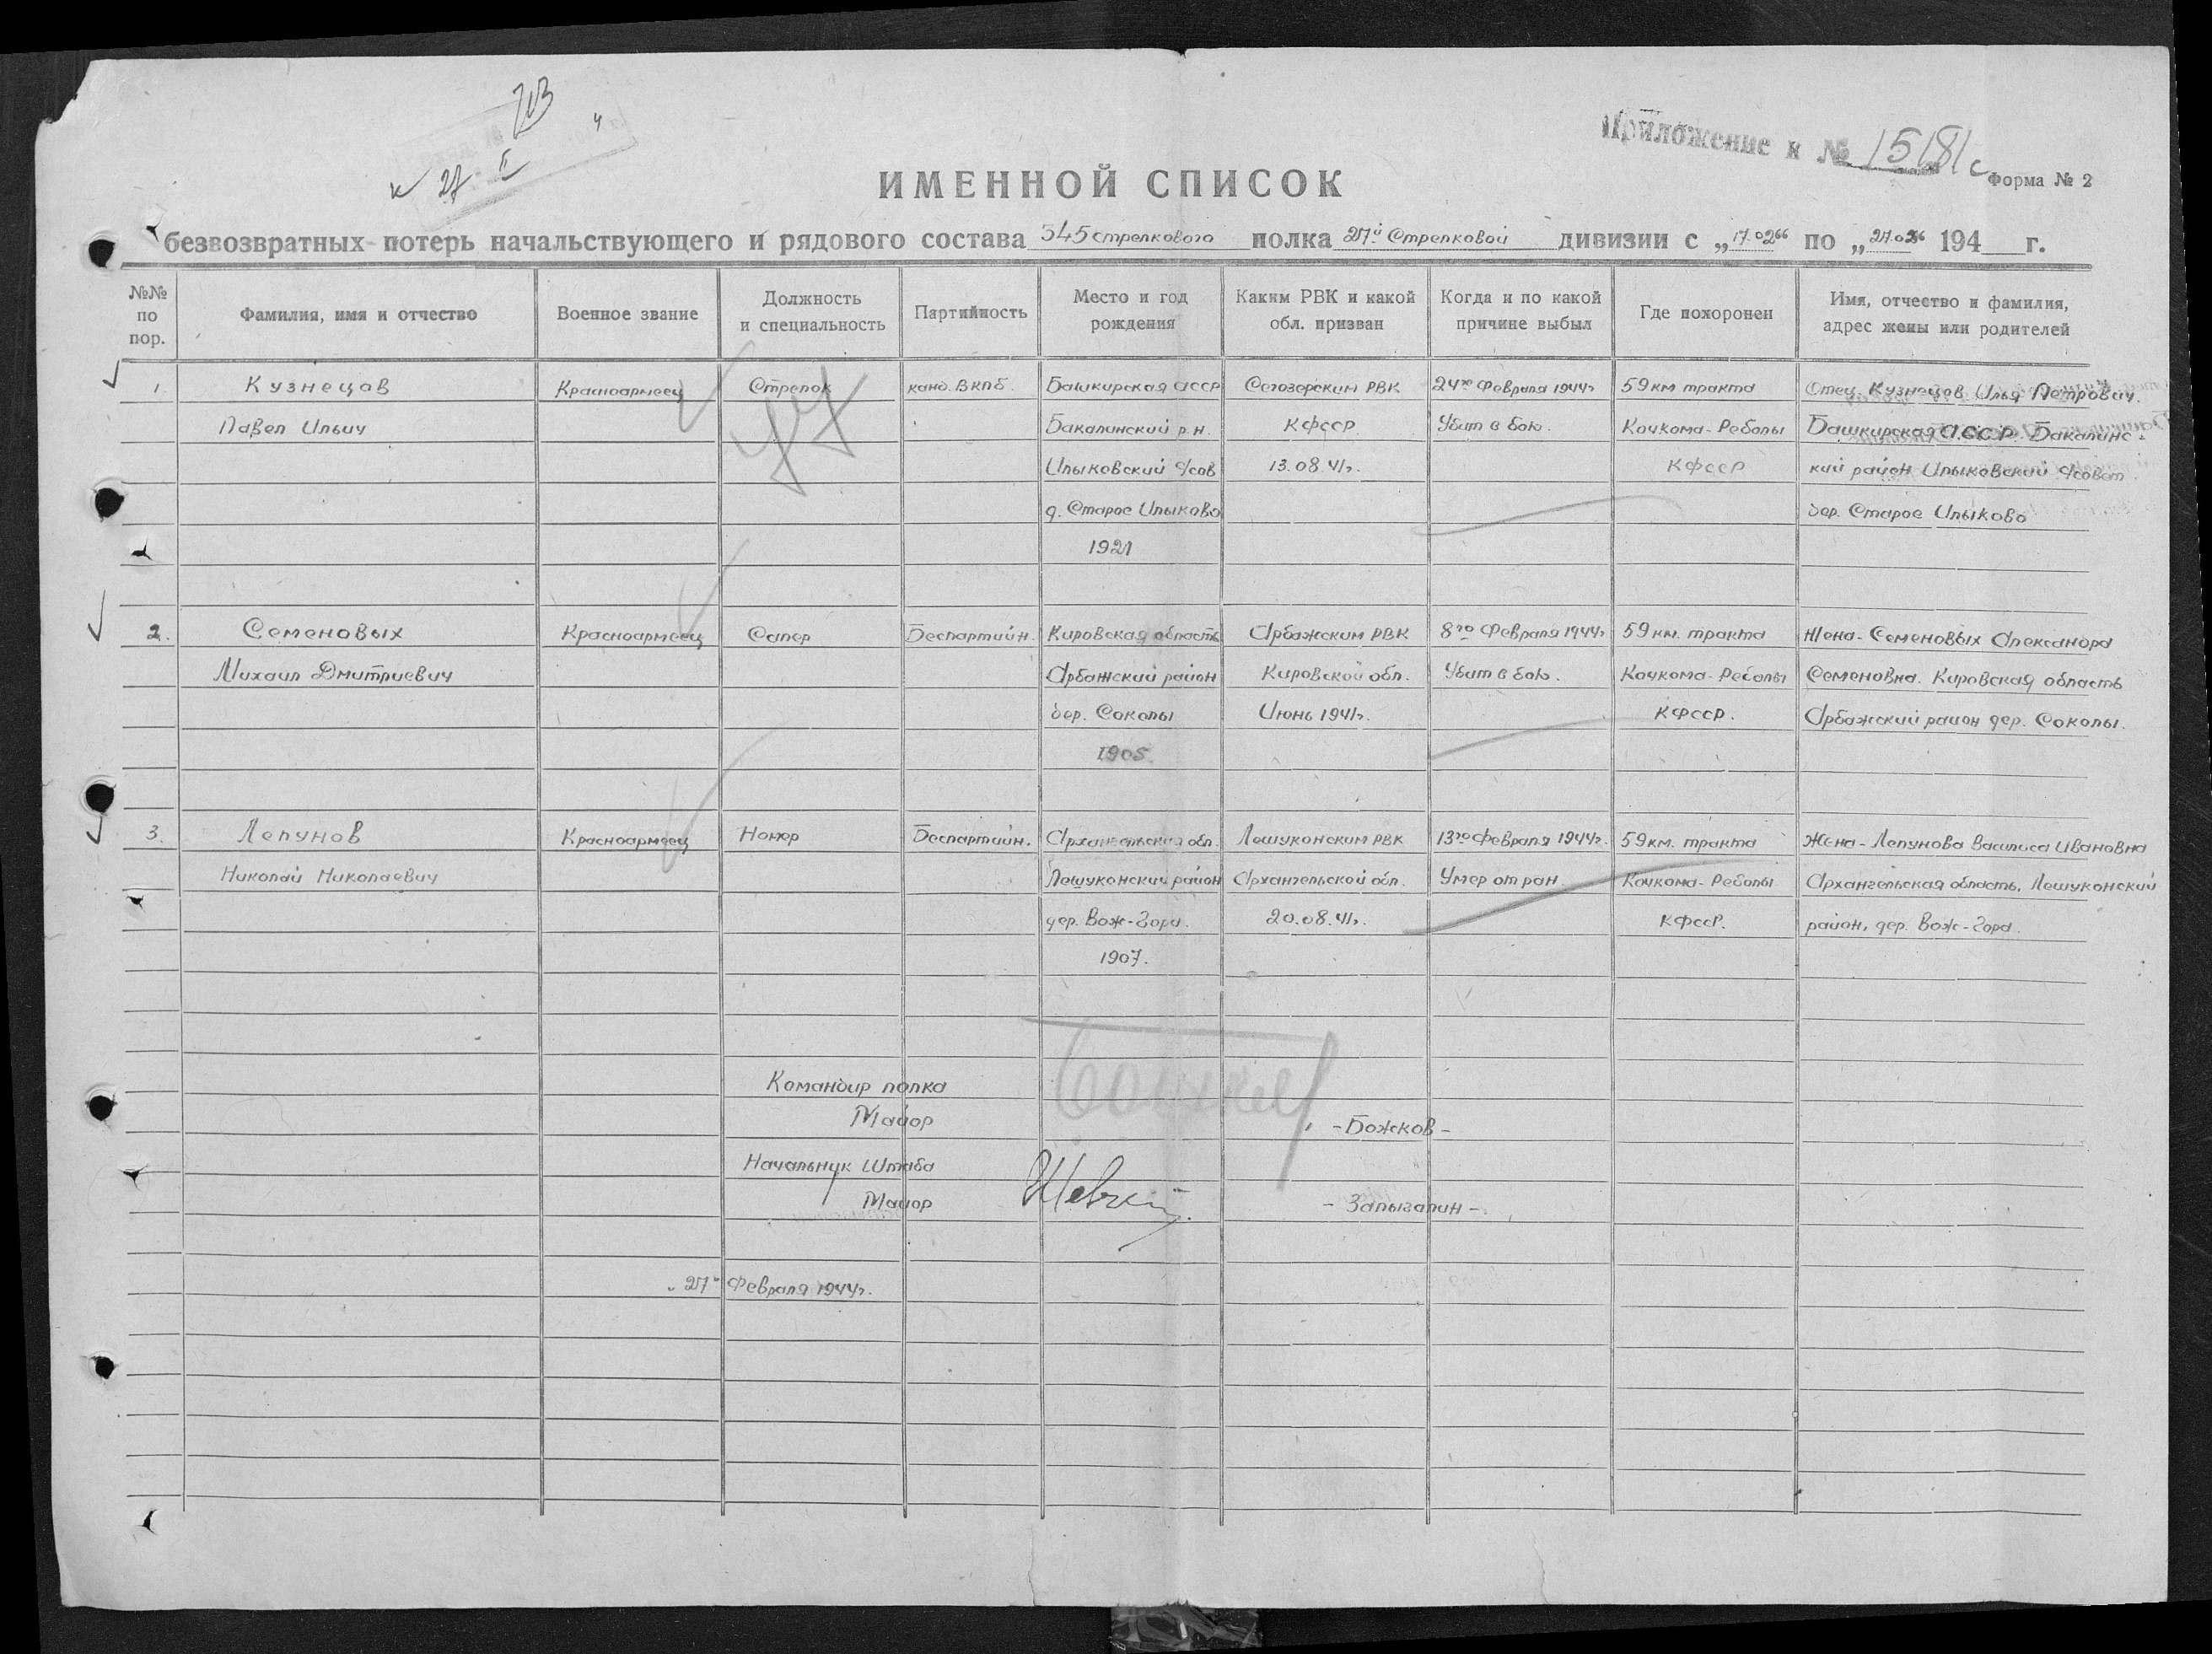 713
к 27 II
Приложение к № 15181с
Форма № 2
ИМЕННОЙ СПИСОК
безвозвратных потерь начальствующего и рядового состава 345 стрелкового полка 27й Стрелковой дивизии с „17.02“ по „27.02“ 194 г.
№№ по пор. Фамилия, имя и отчество Военное звание Должность и специальность Партийность Место и год рождения Каким РВК и какой обл. призван Когда и по какой причине выбыл Где похоронен Имя, отчество и фамилия, адрес жены или родителей
1. Кузнецов Красноармеец Стрелок канд. ВКПб. Башкирская АССР Сегозерским РВК 24го Февраля 1944г 59 км тракта Отец Кузнецов Илья Петрович.
Павел Ильич Бакалинский р.н. КФССР Убит в бою. Кочкома-Реболы Башкирская А.С.С.Р. Бакалинс-
Илыковский с/сов 13.08.41г. КФССР кий район Илыковский с/совет
д. Старое Илыково дер. Старое Илыково
1921
2. Семеновых Красноармеец Сапер Беспартийн. Кировская область Арбажским РВК 8го Февраля 1944г 59 км. тракта Жена-Семеновых Александра
Михаил Дмитриевич Арбажский район Кировской обл. Убит в бою. Кочкома-Реболы Семеновна. Кировская область
дер. Соколы Июнь 1941г. КФССР. Арбажский район дер. Соколы.
1905.
3. Лепунов Красноармеец Номер Беспартийн. Архангельская обл. Лешуконским РВК 13го Февраля 1944г. 59 км. тракта Жена-Лепунова Василиса Ивановна
Николай Николаевич Лешуконский район Архангельской обл. Умер от ран Кочкома-Реболы Архангельская область, Лешуконский
дер. Вож-Гора. 20.08.41г. КФССР. район, дер. Вож-Гора.
1907.
Командир полка
Майор -Божков-
Начальник Штаба
Майор -Залыгалин-
„27“ Февраля 1944г.